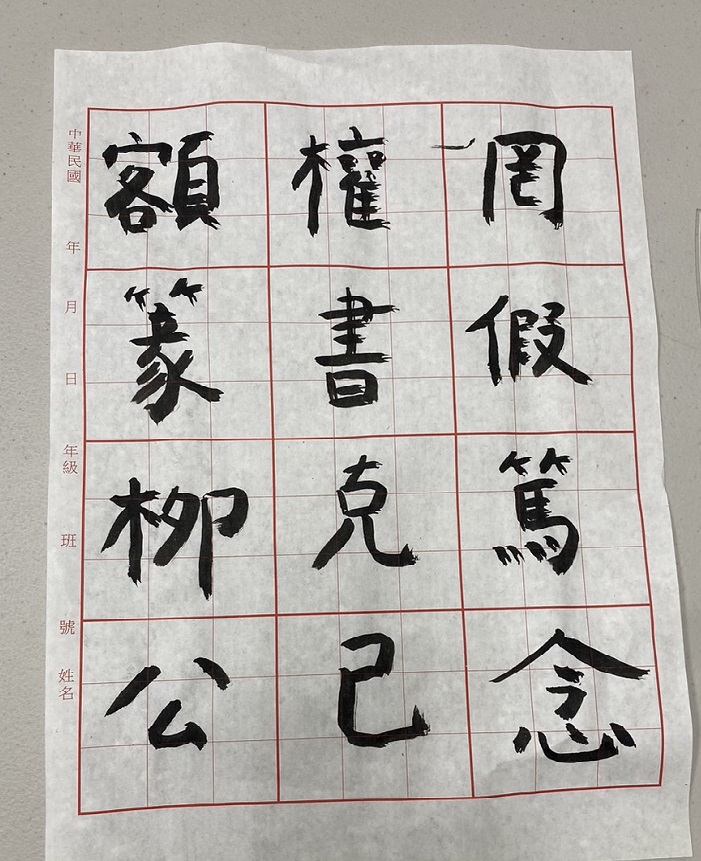 罔假篤念
權書克巳
額篆柳公
中華民國 年 月 日 年級 班 號 姓名